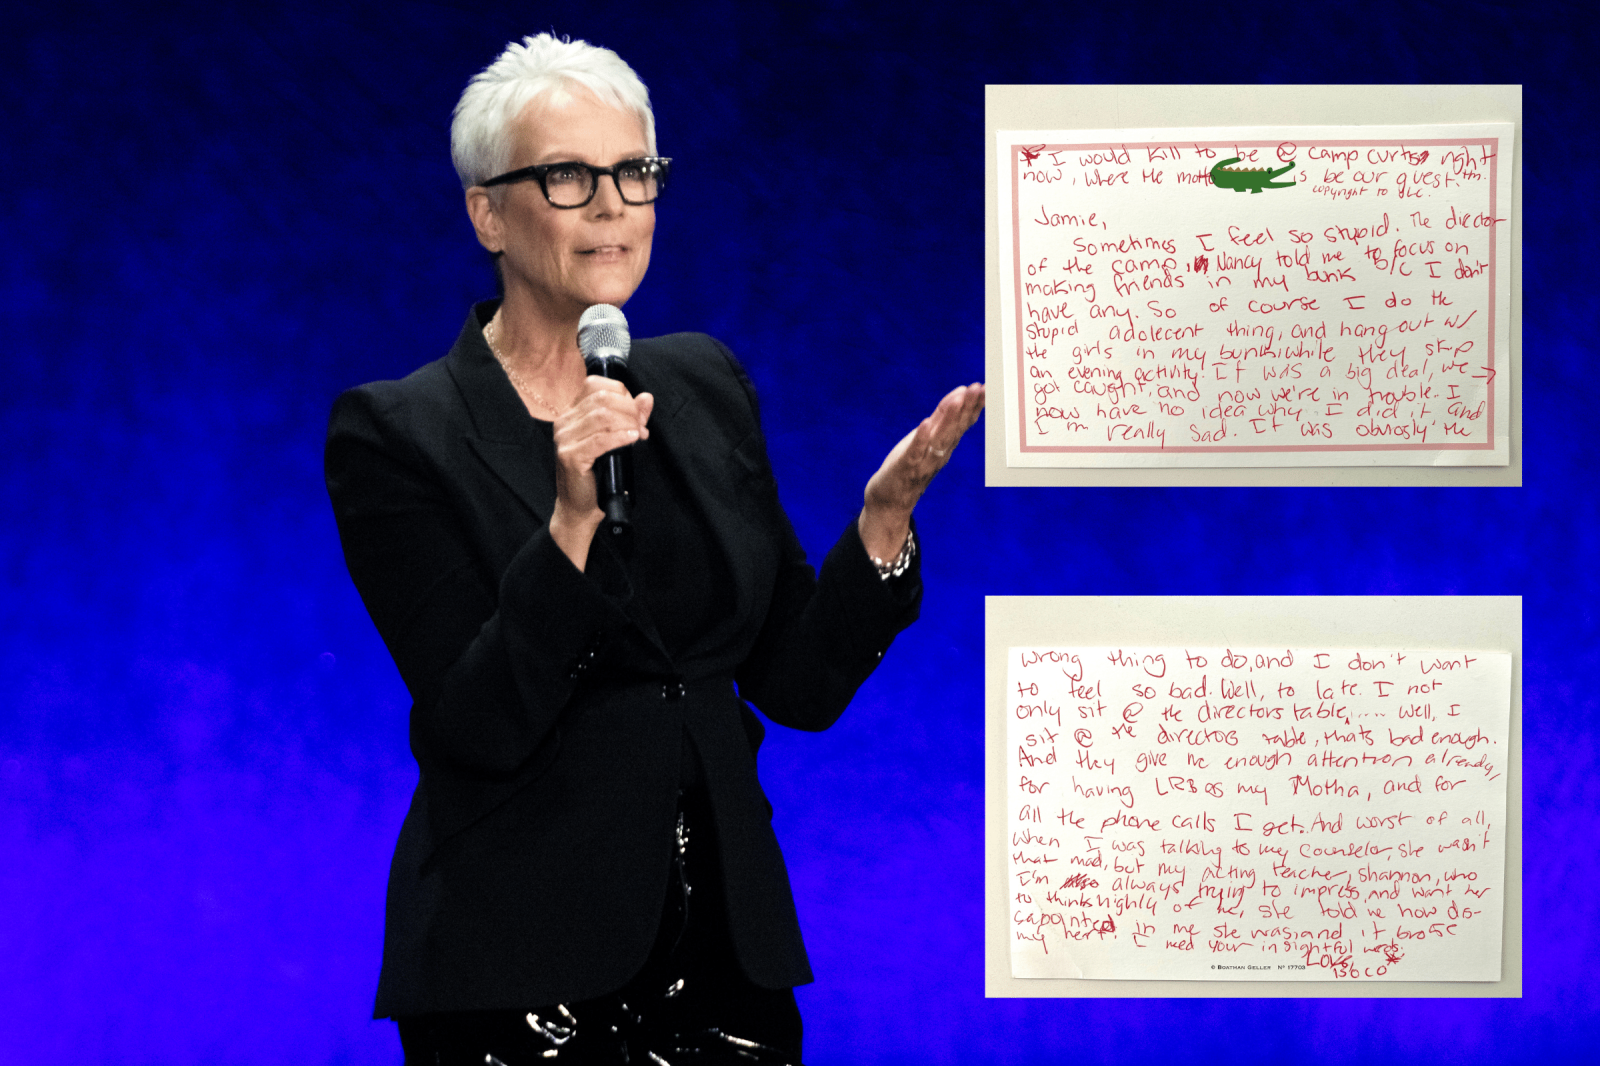 * I would kill to be @ camp curtis right
now, where the motto is be our guest. tm.
copyright to GLC.
Jamie,
Sometimes I feel so stupid. The director
of the camp, Nancy told me to focus on
making friends in my bunk b/c I don't
have any. So of course I do the
stupid adolecent thing, and hang out w/
the girls in my bunk while they skip
an evening activity. It was a big deal, we →
got caught, and now we're in trouble. I
now have no idea why I did it and
I'm really sad. It was obviosly the
wrong thing to do, and I don't want
to feel so bad. Well, to late. I not
only sit @ the directors table, .... well, I
sit @ the directors table, thats bad enough.
And they give me enough attention already,
for having LRB as my Motha, and for
all the phone calls I get. And worst of all,
when I was talking to my counselor, she wasn't
that mad, but my acting teacher, Shannon, who
I'm always trying to impress, and want her
to think highly of me, she told me how dis-
sapointed in me she was, and it broke
my heart. I need your insightful words.
Love,
Boco*
© Boathan Geller Nº 17703